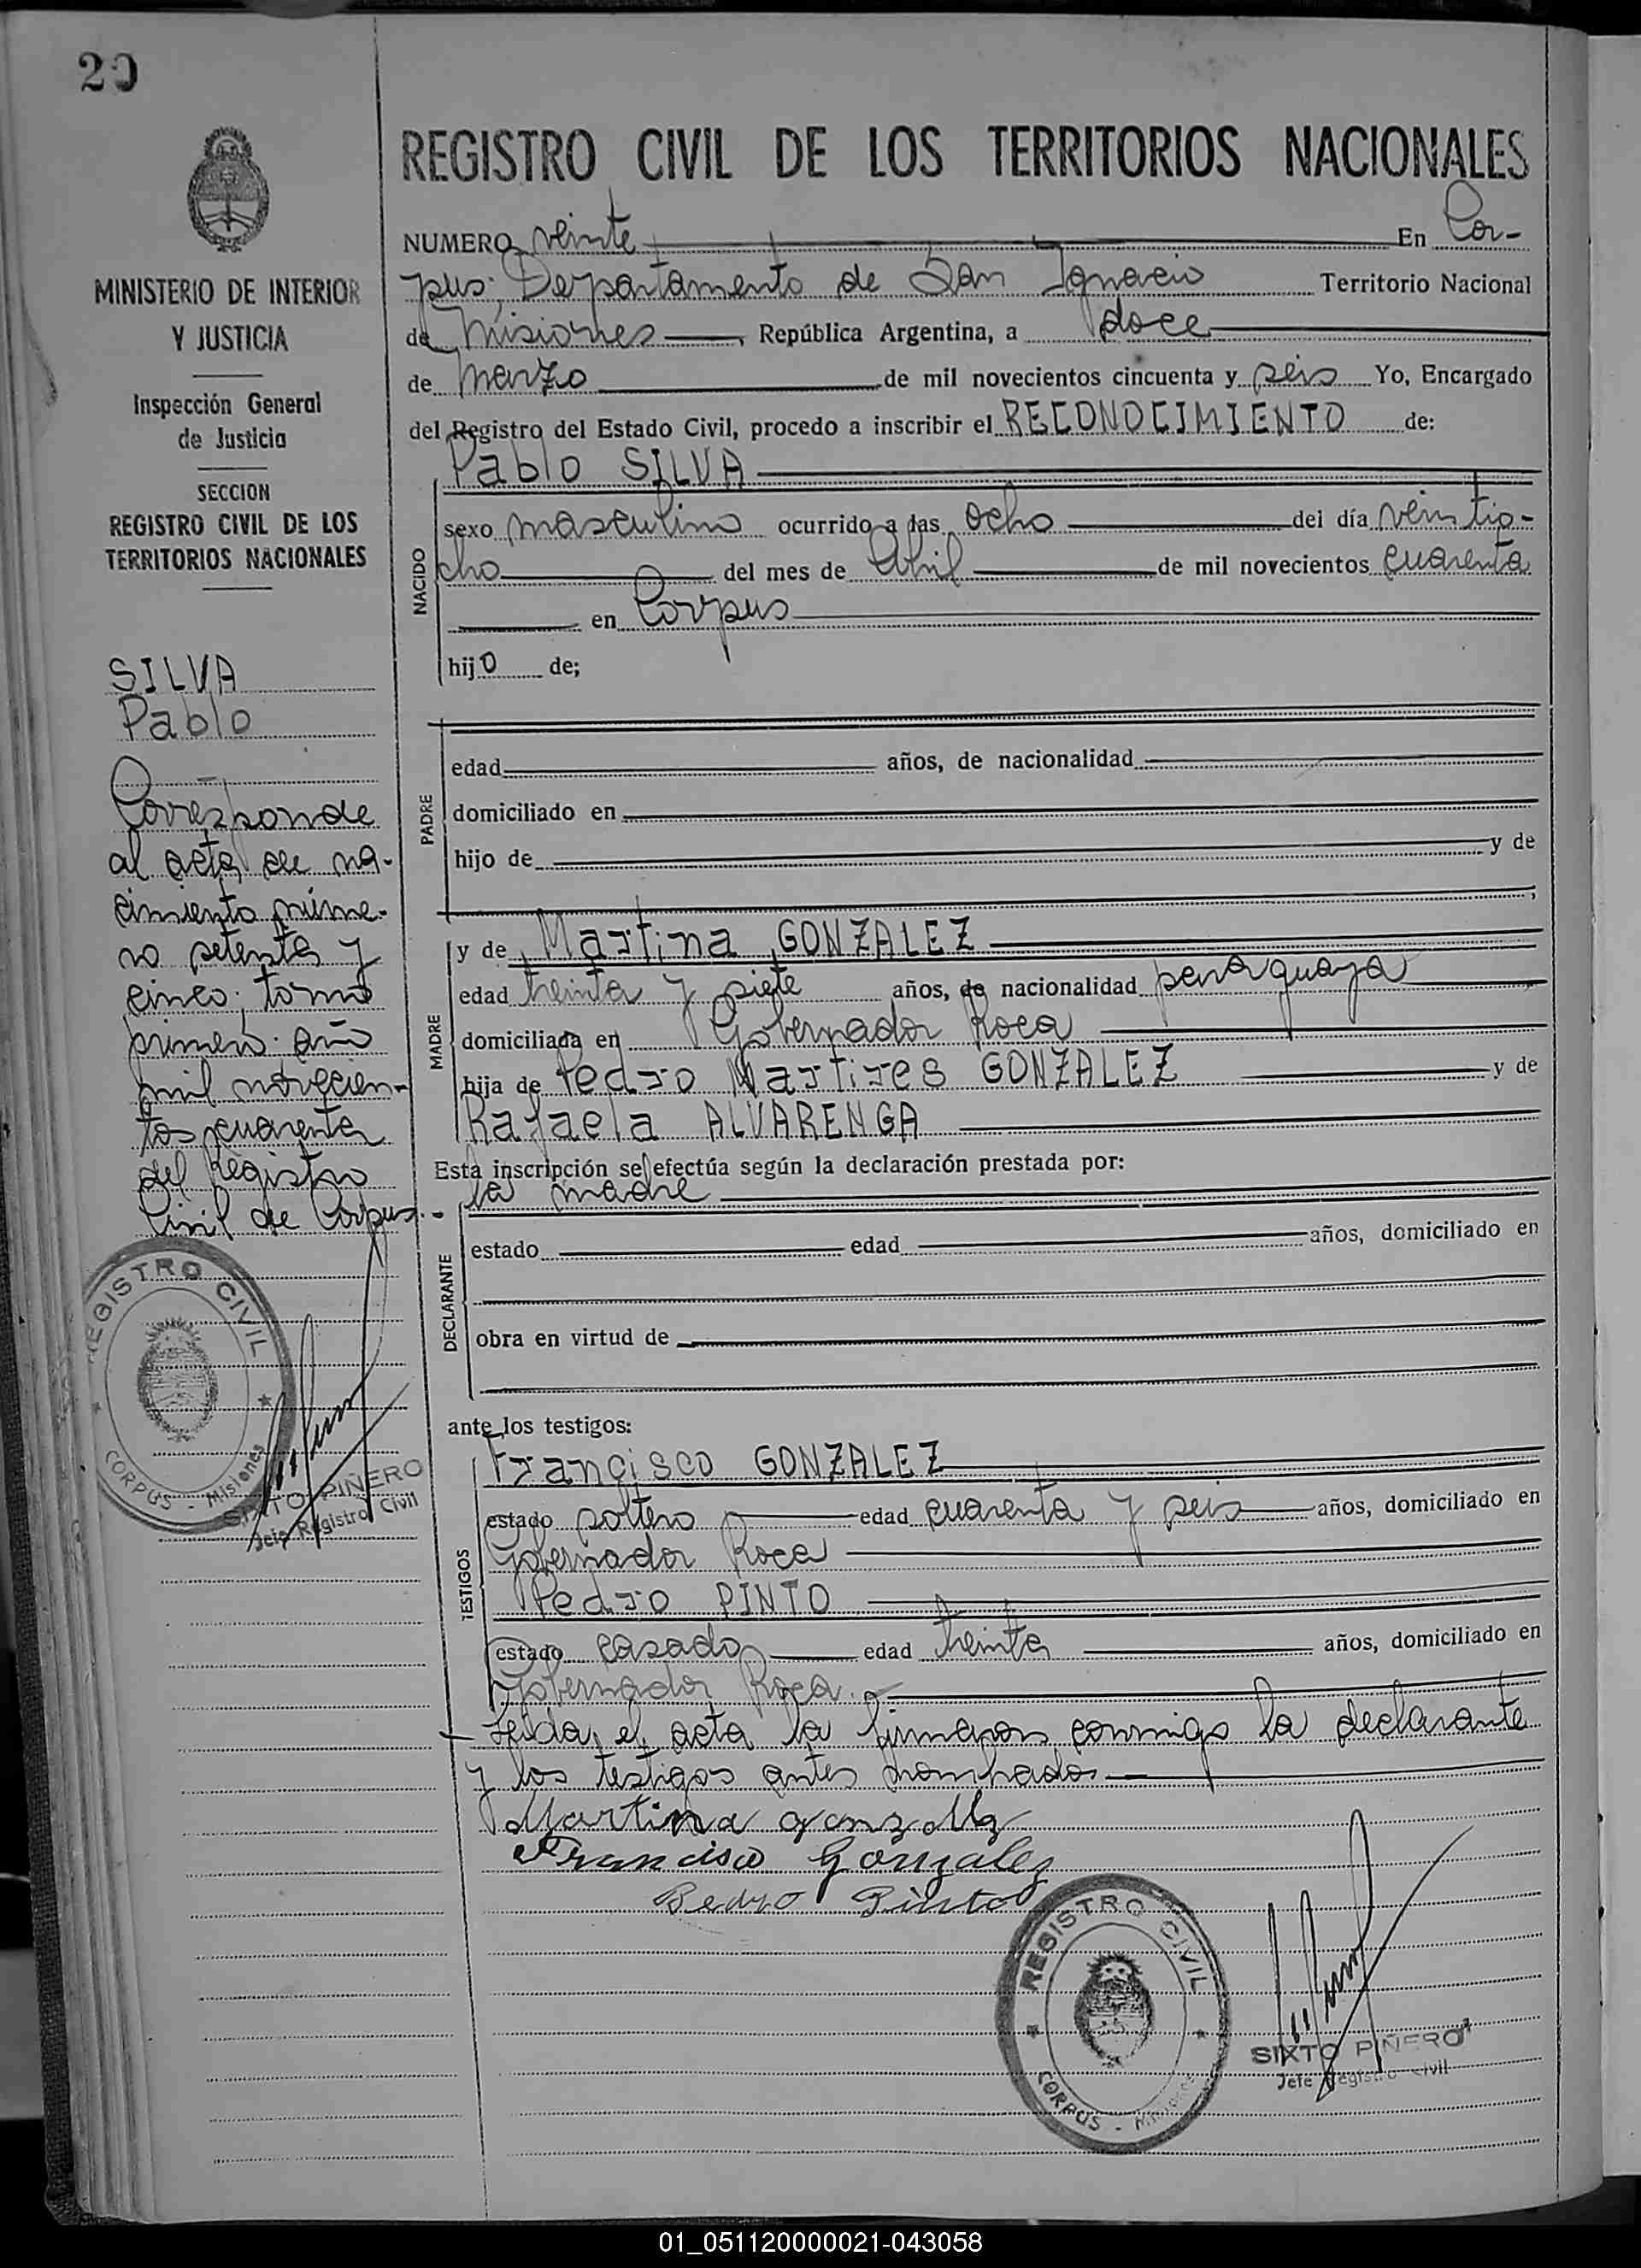 20
MINISTERIO DE INTERIOR
Y JUSTICIA
Inspección General
de Justicia
SECCION
REGISTRO CIVIL DE LOS
TERRITORIOS NACIONALES
SILVA
Pablo
Corresponde
al acta de na-
cimiento núme-
ro setenta y
cinco; tomo
primero año
mil novecien-
tos cuarenta
del Registro
Civil de Corpus.-
REGISTRO CIVIL
CORPUS - Misiones
SIXTO PIÑERO
Jefe Registro Civil
REGISTRO CIVIL DE LOS TERRITORIOS NACIONALES
NUMERO veinte En Cor-
pus; Departamento de San Ignacio Territorio Nacional
de Misiones, República Argentina, a doce
de marzo de mil novecientos cincuenta y seis Yo, Encargado
del Registro del Estado Civil, procedo a inscribir el RECONOCIMIENTO de:
Pablo SILVA
NACIDO
sexo masculino ocurrido a las ocho del día veintio-
cho del mes de Abril de mil novecientos cuarenta
en Corpus
hijo de;
PADRE
edad años, de nacionalidad
domiciliado en
hijo de y de
;
MADRE
y de Martina GONZALEZ
edad treinta y siete años, de nacionalidad paraguaya
domiciliada en Gobernador Roca
hija de Pedro Martires GONZALEZ y de
Rafaela ALVARENGA
Esta inscripción se efectúa según la declaración prestada por:
la madre
DECLARANTE
estado edad años, domiciliado en
obra en virtud de
ante los testigos:
TESTIGOS
Francisco GONZALEZ
estado soltero edad cuarenta y seis años, domiciliado en
Gobernador Roca
Pedro PINTO
estado casado edad treinta años, domiciliado en
Gobernador Roca.
Leida el acta la firmaron conmigo la declarante
y los testigos antes nombrados
Martina gonzalez
Francisco Gonzalez
Pedro Pinto
REGISTRO CIVIL
CORPUS - Misiones
SIXTO PIÑERO
Jefe Registro Civil
01_051120000021-043058